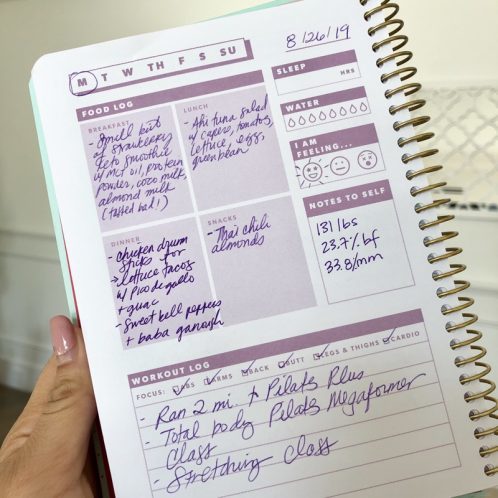 M T W TH F S SU
8/26/19
FOOD LOG
BREAKFAST
- Small bit
of strawberry
keto smoothie
w/ MCT oil, protein
powder, coco milk,
almond milk
(tasted bad!)
LUNCH
- Ahi tuna salad
w/ capers, tomatoes,
lettuce, eggs,
green bean
DINNER
- chicken drum
sticks for
→ lettuce tacos
w/ Pico de gallo
+ guac
- sweet bell peppers
+ baba ganoush
SNACKS
- Thai chili
almonds
SLEEP
HRS
WATER
I AM
FEELING...
NOTES TO SELF
131 lbs
23.7% bf
33.8% mm
WORKOUT LOG
FOCUS: ABS ARMS BACK BUTT LEGS & THIGHS CARDIO
- Ran 2 mi. + Pilates Plus
- Total body Pilates Megaformer
Class
- Stretching class